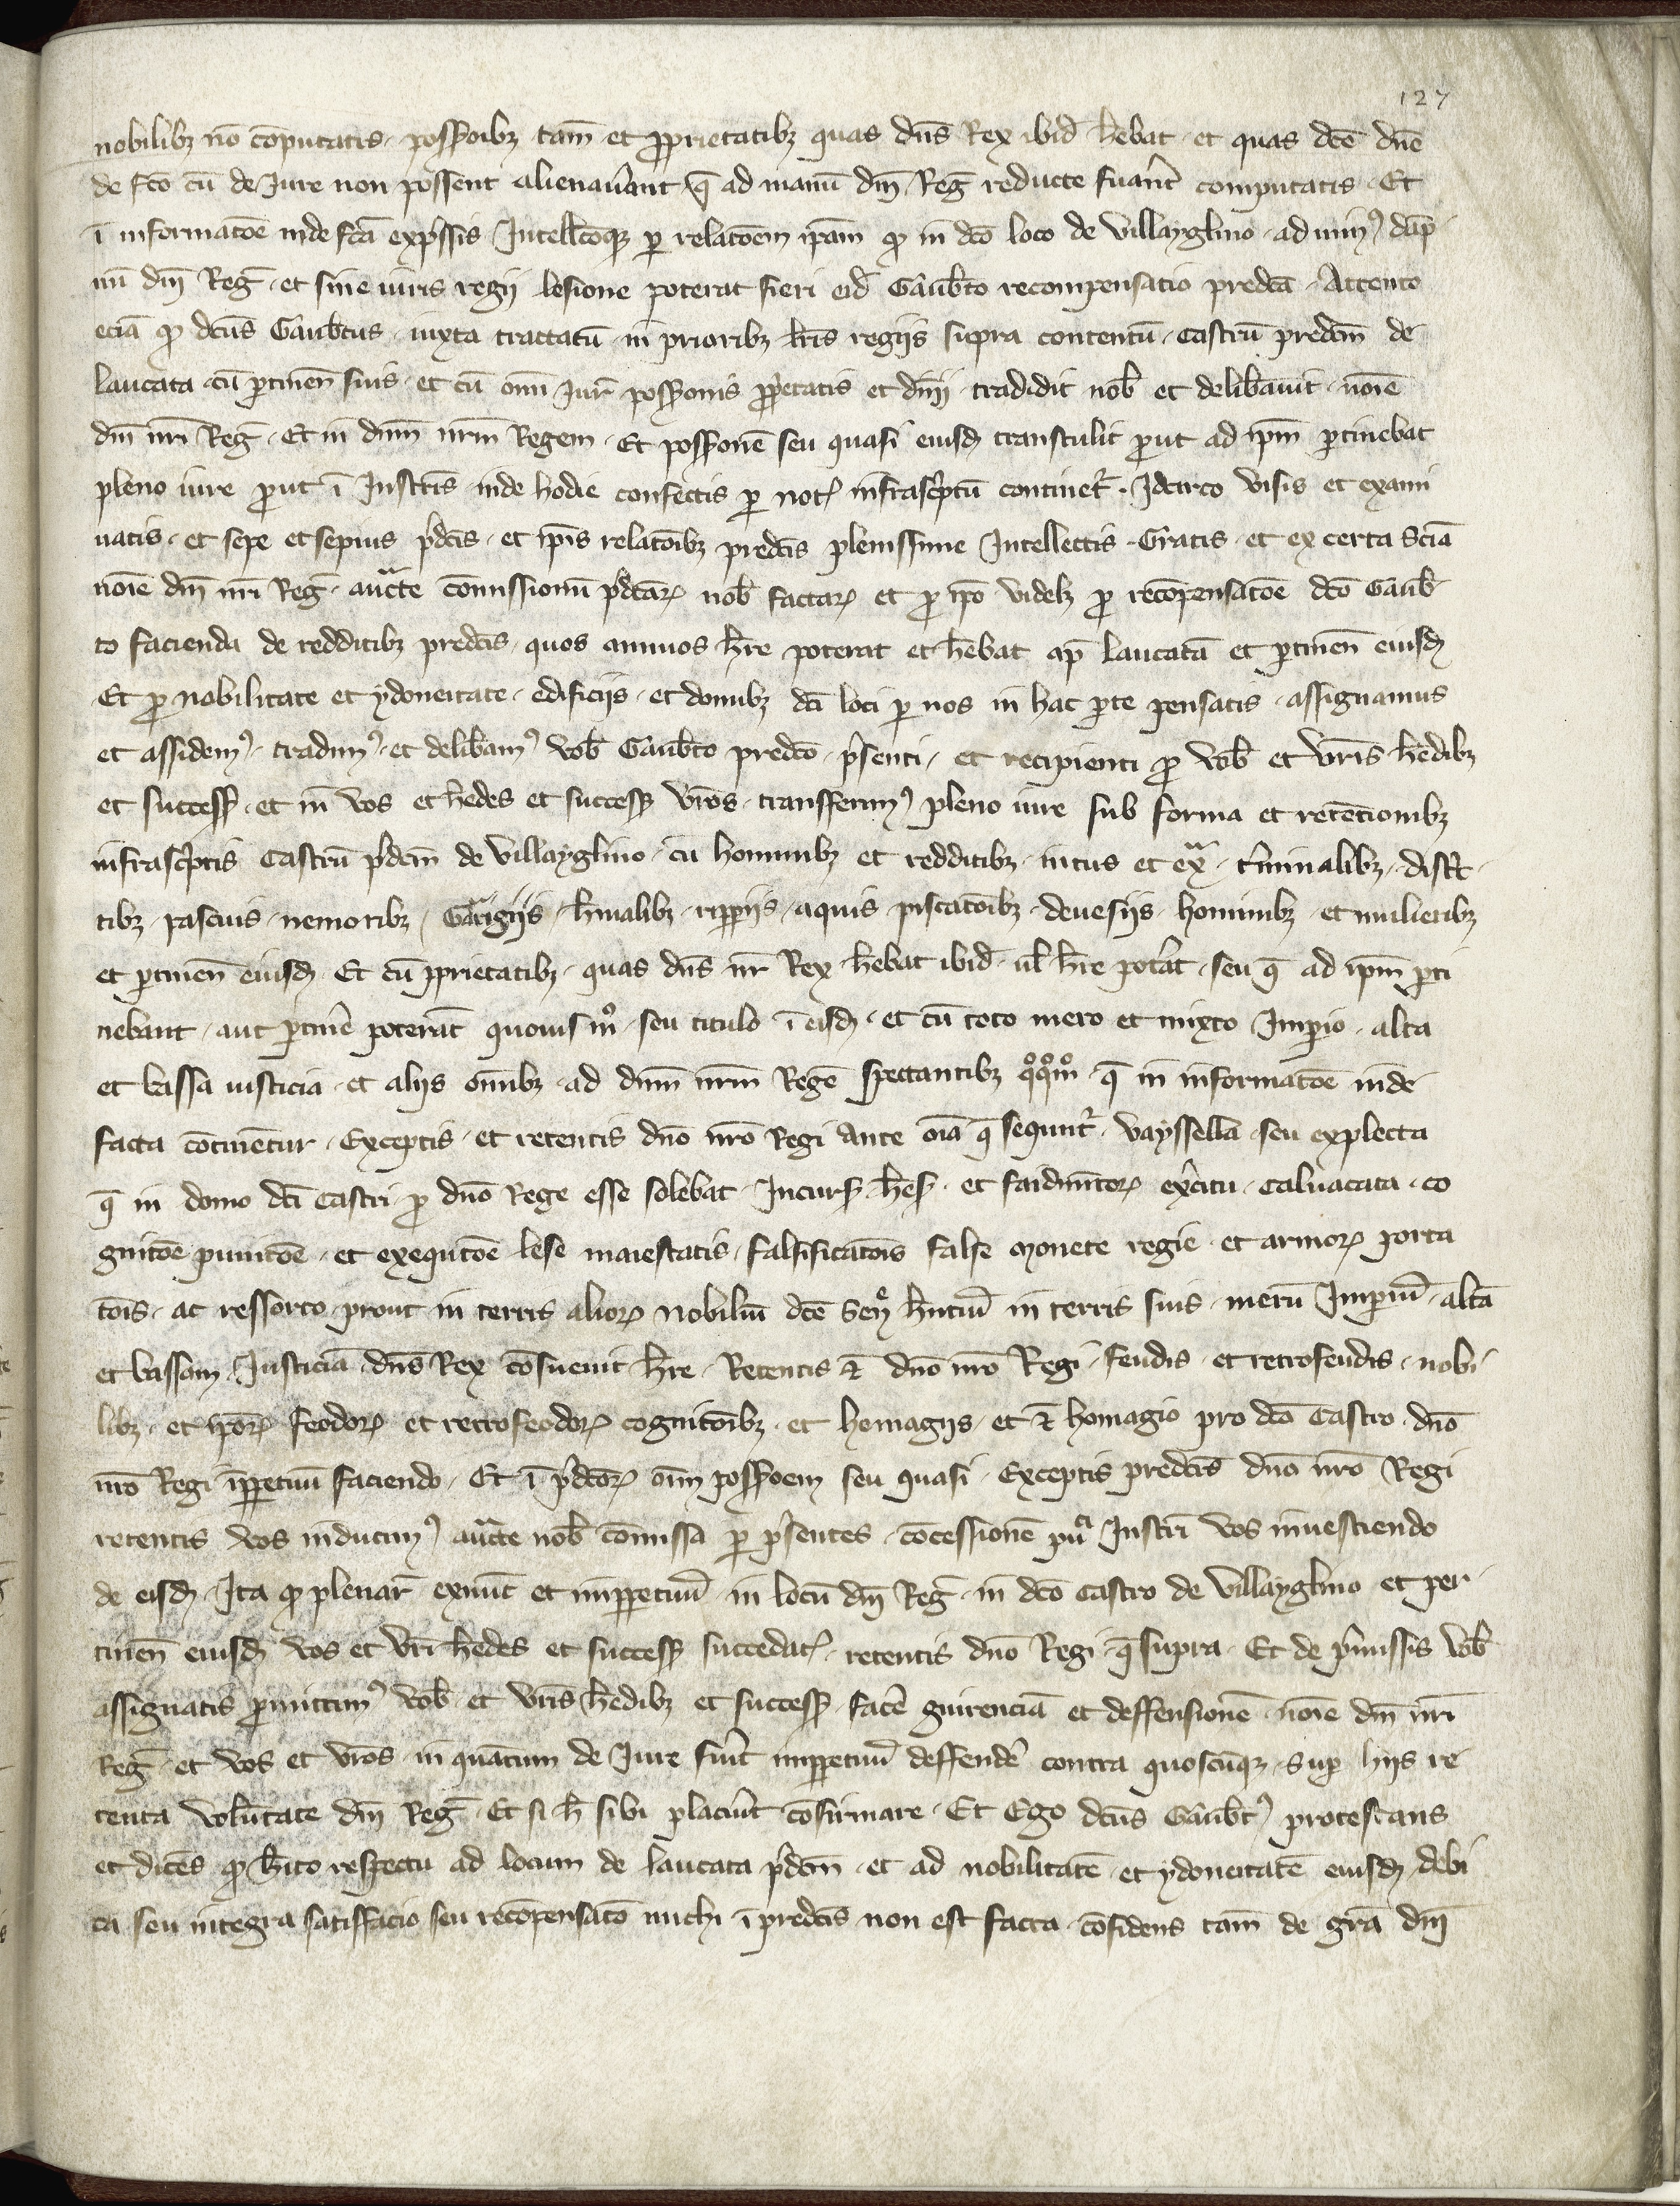 127
nobilibꝫ nō cōputatis · possessōibꝫ tam̄ et ꝓprietatibꝫ quas dn̄s Rex ibid̄ h̄ebat · et quas dc̄e dn̄e
de fc̄o cū de Jure non possent alienaūant q̄ ad manū dn̄i Reḡ reducte fuer̄t computatis · Et
ī informatōe inde fc̄a exp̄ssis Intellc̄oqꝫ ꝑ relatōem ip̄am qꝫ in dc̄o loco de Villayglino · ad minꝰ dāp
nū dn̄i Reḡ · et sine iuris regij lesione poterat fieri eid̄ Gaūbto recompensatio predc̄a · Attento
eciā ꝙ dc̄us Gaūbtus · iuxta tractatū in prioribꝫ lr̄is regijs supra contentū · castrū predc̄m de
laucata cū ꝑtinen̄ suis · et cū om̄i Jur̄ possessionis ꝓprietatis et dn̄ij · tradidit nob̄ et delib̄auit · noīe
dn̄i nr̄i Reḡ · Et in dn̄m nr̄m Regem · Et possessionē seu quasi eiusdꝫ transtulit ꝓut ad ip̄m ꝑtinebat
pleno iure ꝓut ī Instr̄is inde hodie confectis ꝑ not̄ infrasc̄ptū continet̄ · Jdcirco visis et exami
natis · et sepe et sepius p̄dc̄is · et ip̄is relatōibꝫ predc̄is plenissime Intellectis · Gratis · et ex certa scīa
noīe dn̄i nr̄i Reḡ · auc̄te cōmissionū p̄dc̄arꝝ nob̄ factarꝝ et ꝓ ip̄o videlꝫ ꝓ recōpensatōe dc̄o Gaūb
to facienda de redditibꝫ predc̄is · quos annuos h̄re poterat et h̄ebat ap̄ laucatā et ꝑtinen̄ eiusdꝫ
Et ꝓ nobilitate et ydoneitate · edificijs · et domibꝫ dc̄i loci ꝑ nos in hac ꝑte pensatis · assignamus
et assidemꝰ · tradimꝰ · et delib̄amꝰ vob̄ Gaūbto predc̄o · p̄senti · et recipienti ꝓ vob̄ et vr̄is h̄edibꝫ
et success̄ · et in vos et h̄edes et success̄ vr̄os · transferimꝰ pleno iure sub forma et retēcionibꝫ
infrasc̄ptis Castrū p̄dc̄m de Villayglino · cū hominibꝫ et redditibꝫ · intus et ext̄ · t̄minalibꝫ · dist̄c
tibꝫ · pascuis · nemoribꝫ · Garrigijs · h̄malibꝫ · rippijs · aquis piscatōibꝫ · deuesijs · hominibꝫ · et mulieribꝫ
et ꝑtinen̄ eiusdꝫ · Et cū ꝓprietatibꝫ · quas dn̄s nr̄ Rex h̄ebat ibid̄ · ul̄ h̄re pot̄at · seu q̄ ad ip̄m ꝑti
nebant · aut ꝑtinēe poterāt quouis mº · seu titulo ī eisdꝫ · et cū toto mero et mixto Imꝑio · alta
et bassa iusticia · et alijs om̄ibꝫ · ad dn̄m nr̄m Regē spectantibꝫ qºqºmº · q̄ in informatōe inde
facta cōtinētur · Exceptis · et retentis dn̄o nr̄o Regi ante oīa q̄ sequnt̄ · vayssella · seu explecta
q̄ in domo dc̄i Castri · ꝓ dn̄o Rege esse solebat · Incurs̄ · h̄es̄ · et faidimētorꝝ ex̄citu · caluacata · co
gnitōe punitōe · et exequtōe lese maiestatis · falsificatōis false monete regie · et armorꝝ porta
tōis · ac ressorto · prout in terris aliorꝝ nobiliū dc̄e Sen̄ h̄ntiū in terris suis · merū Imꝑiū · altā
et bassam Justiciā · dn̄s Rex cōsueuit h̄re · Retentis ⁊ dn̄o nr̄o Regi · feudis · et retrofeudis · nobi
libꝫ · et ip̄orꝝ feodorꝝ et retrofeodorꝝ cognitōibꝫ · et homagijs · et ⁊ homagio pro dc̄o Castro · dn̄o
nr̄o Regi īpꝑetuū faciendo · Et ī p̄dc̄orꝝ om̄i possessōem seu quasi · Exceptis predc̄is dn̄o nr̄o Regi
retentis vos inducimꝰ auc̄te nob̄ cōmissa ꝑ p̄sentes · cōcessionē pn̄ti Instr̄i vos inuestiendo
de eisdꝫ · Ita ꝙ plenar̄ exnūc et impꝑetuū in locū dn̄i Reḡ · in dc̄o castro de Villayglino et per
tinen̄ eiusdꝫ vos et vr̄i h̄edes et success̄ succedat̄ · retentis dn̄o Regi q̄ supra · Et de p̄missis vob̄
assignatis ꝓmittimꝰ vob̄ et vr̄is h̄edibꝫ et success̄ · fac̄e guirenciā et deffensionē · noīe dn̄i nr̄i
Reḡ · et vos et vr̄os · in quātum de Jure fu̅it impꝑetuū deffend̄e contra quoscūqꝫ · Suꝑ hijs re
tenta volūtate dn̄i Reḡ · Et si h̄ sibi placūit cōfirmare · Et Ego dc̄us Gaūbtꝰ protestans
et dicēs ꝙ h̄ito respectu ad locum de laucata p̄dc̄m · et ad nobilitatē et ydoneitatē eiusdꝫ debi
ta seu integra satisfacio seu recōpensatō michi ī predc̄is non est facta cōfidens tam̄ de grā dn̄i